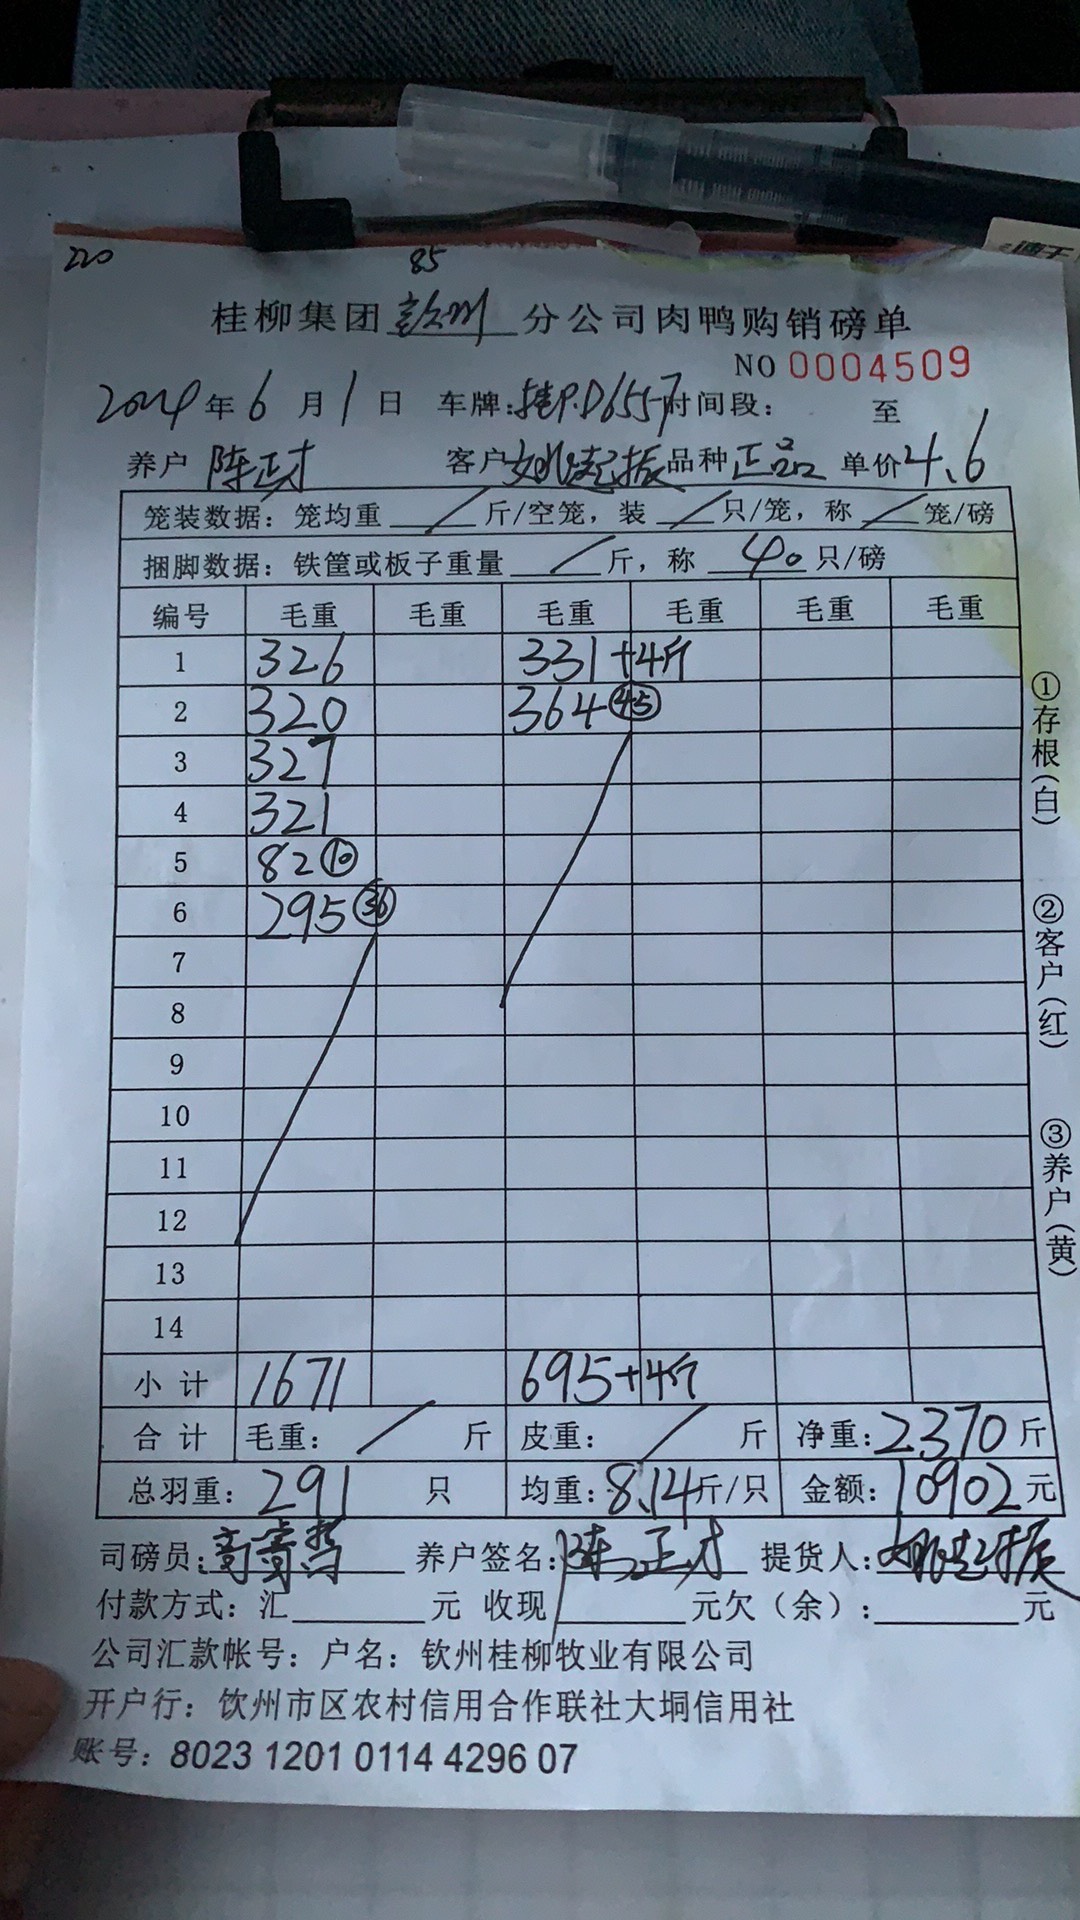 速干
220 85
桂柳集团钦州分公司肉鸭购销磅单
NO 0004509
2024年6月1日 车牌:桂P.D6557时间段: 至
养户 陈正才 客户姚起振品种正品 单价4.6
笼装数据: 笼均重 / 斤/空笼, 装 / 只/笼, 称 / 笼/磅
捆脚数据: 铁筐或板子重量 / 斤, 称 40 只/磅
编号 毛重 毛重 毛重 毛重 毛重 毛重
1 326 331+4斤
2 320 364 ㊺
3 327
4 321
5 82 ⑩
6 295 ㊱
7
8
9
10
11
12
13
14
小计 1671 695+4斤
合计 毛重: / 斤 皮重: / 斤 净重:2370斤
总羽重: 291 只 均重:8.14斤/只 金额:10902元
司磅员: 养户签名:陈正才 提货人:姚起振
付款方式: 汇 元 收现 元欠(余): 元
公司汇款帐号: 户名: 钦州桂柳牧业有限公司
开户行: 饮州市区农村信用合作联社大垌信用社
账号: 8023 1201 0114 4296 07
①存根(白)
②客户(红)
③养户(黄)